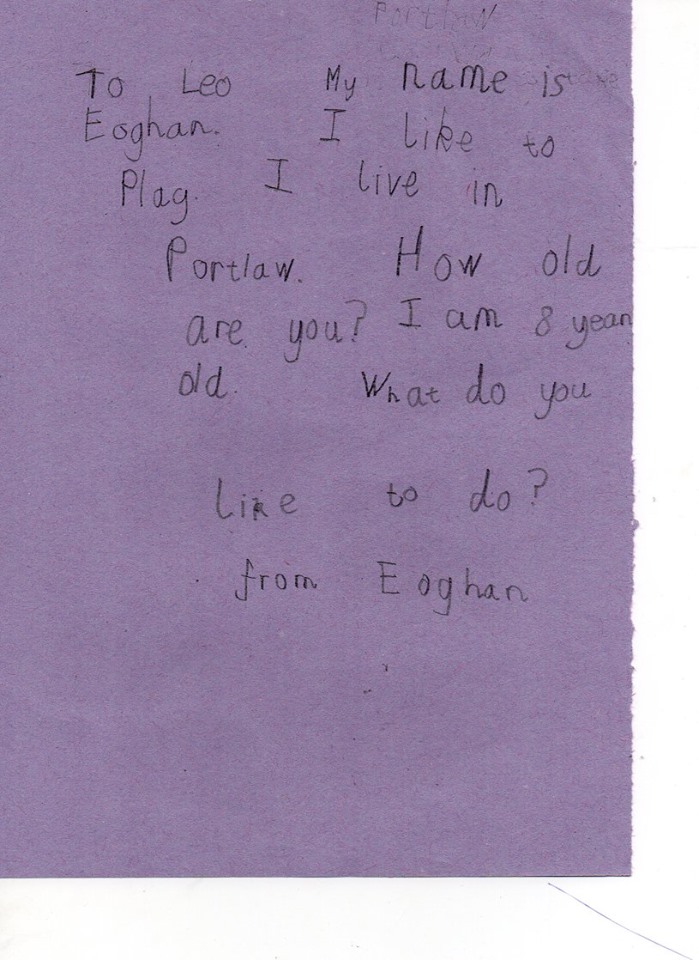 Portlaw
To Leo My name is
Eoghan. I like to
Plag. I live in
Portlaw. How old
are you? I am 8 year
old. What do you
like to do?
from Eoghan